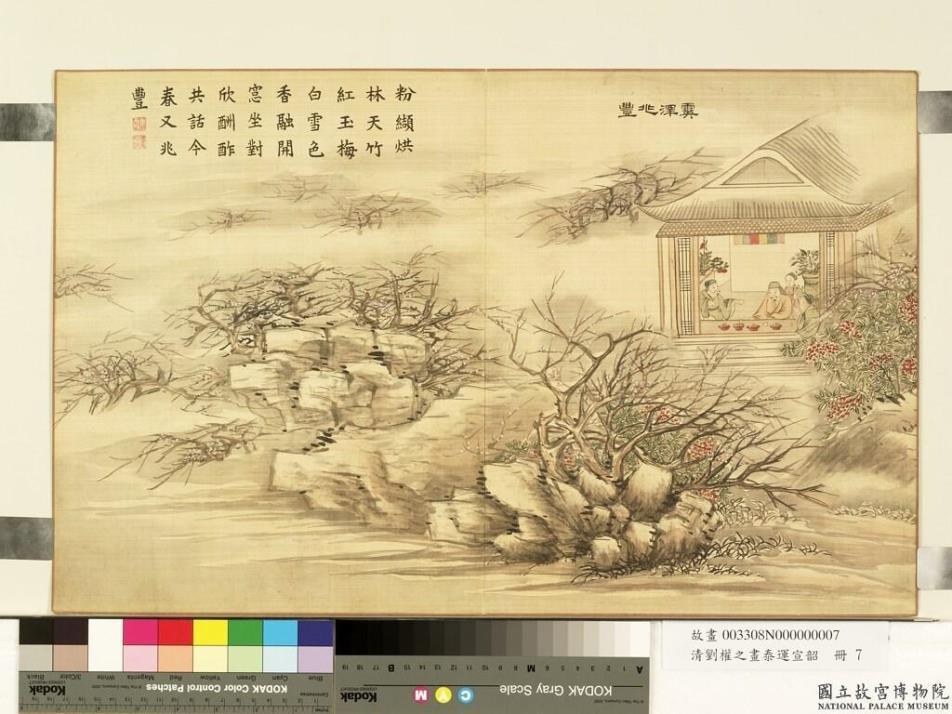 霙澤兆豐
粉纈烘
林天竹
紅玉梅
白雪色
香融開
窓坐對
欣酬酢
共話今
春又兆
豐
KODAK Color Control Patches
Blue Cyan Green Yellow Red Magenta White 3/Color Black
Kodak
KODAK Gray Scale
Kodak
C Y M
A 1 2 3 4 5 6 M 8 9 10 11 12 13 14 15 B 17 18 19
故畫 003308N000000007
清劉權之畫泰運宣韶 冊 7
國立故宮博物院
NATIONAL PALACE MUSEUM